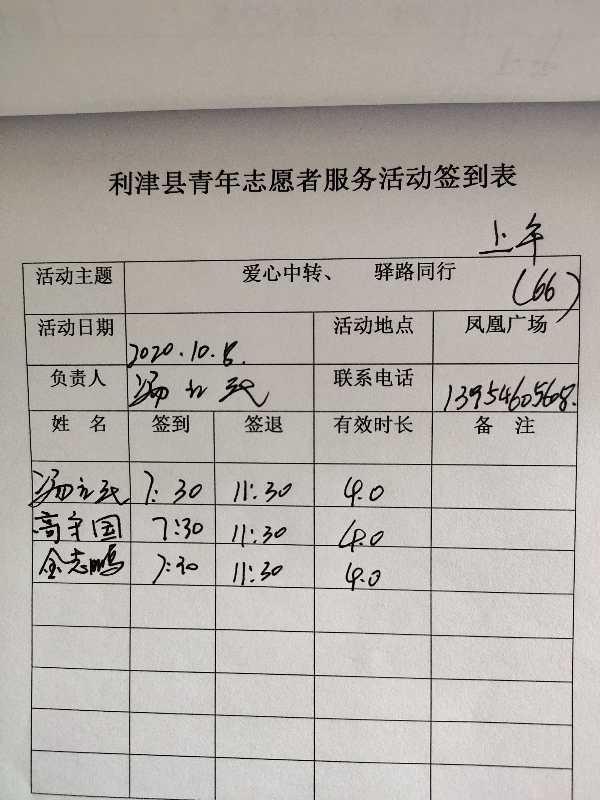 利津县青年志愿者服务活动签到表
上午
活动主题 爱心中转、 驿路同行 (66)
活动日期 2020.10.8. 活动地点 凤凰广场
负责人 联系电话 13954605608.
姓 名 签到 签退 有效时长 备 注
7:30 11:30 4.0
高守国 7:30 11:30 4.0
金志鹏 7:30 11:30 4.0